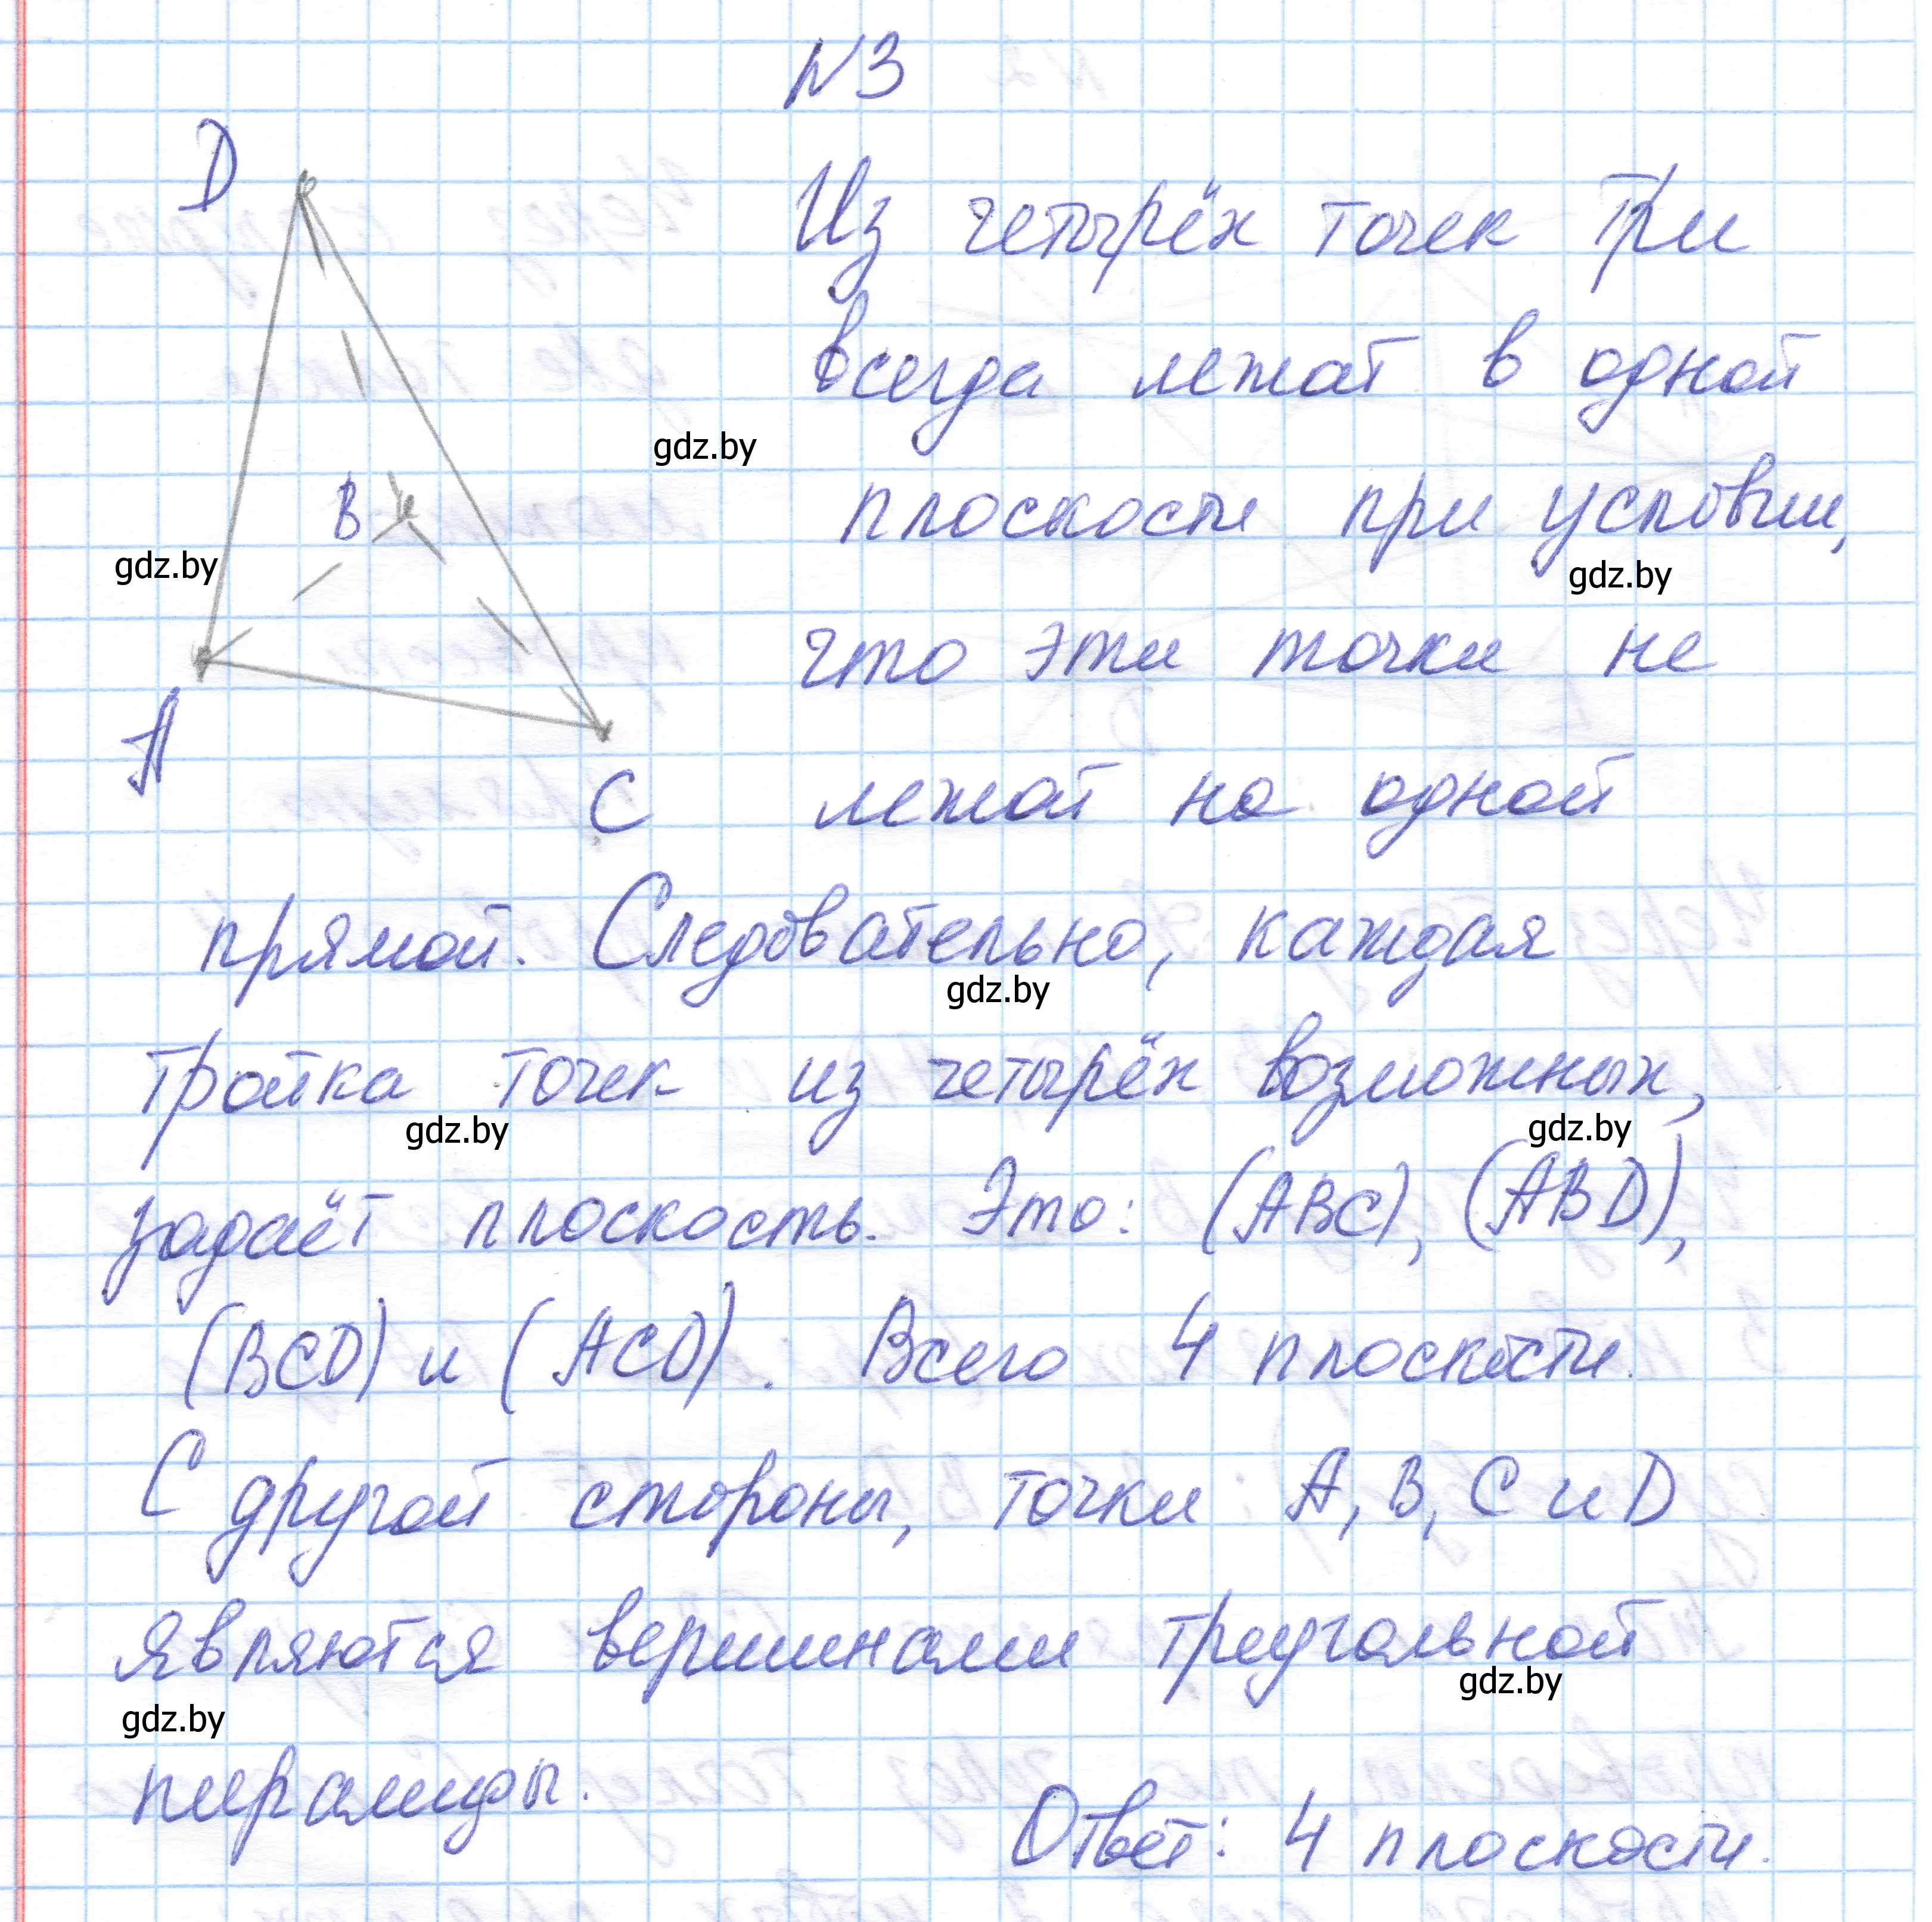 N3
D
Из четырёх точек три
всегда лежат в одной
gdz.by
B
плоскости при условии,
gdz.by
gdz.by
что эти точки не
A
C
лежат на одной
прямой. Следовательно, каждая
gdz.by
тройка точек из четырёх возможных,
gdz.by
gdz.by
задаёт плоскость. Это: (ABC), (ABD),
(BCD) и (ACD). Всего 4 плоскости.
С другой стороны, точки A, B, C и D
являются вершинами треугольной
gdz.by
gdz.by
пирамиды.
Ответ: 4 плоскости.